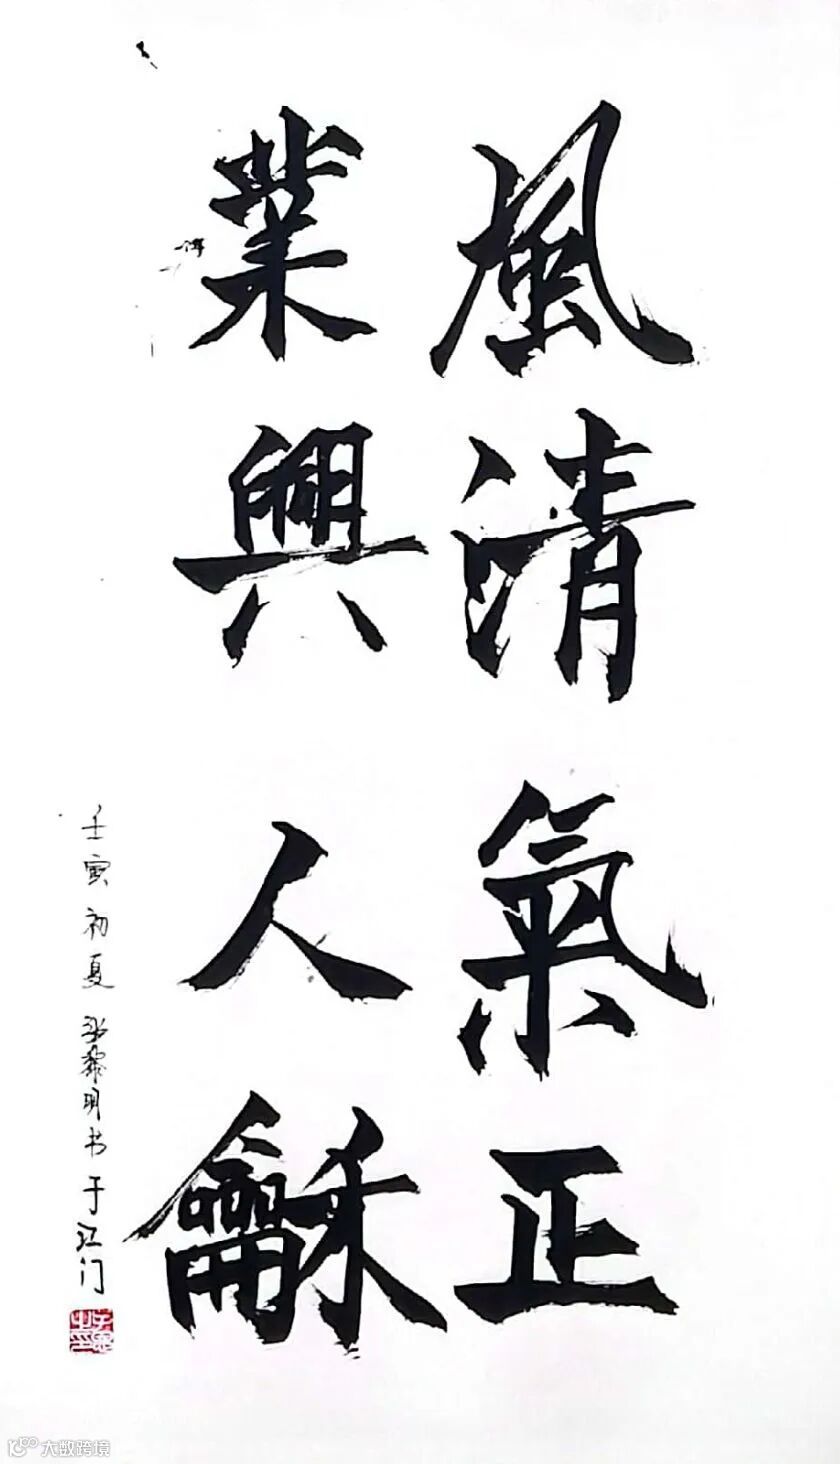 風清氣正
業興人龢
壬寅初夏 黎明书于江门
大数跨境